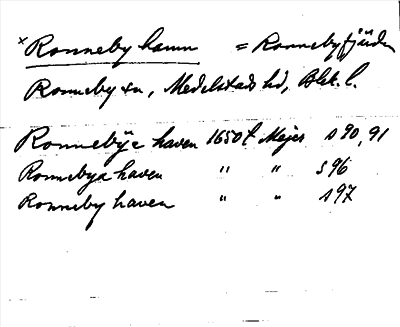 × Ronneby hamn = Ronnebyfjärden
Ronneby sn, Medelstads hd, Blek. l.
Ronnebÿe haven 1650 t. Mejer s 90, 91
Ronnebya haven " " s 96
Ronneby haven " " s 97